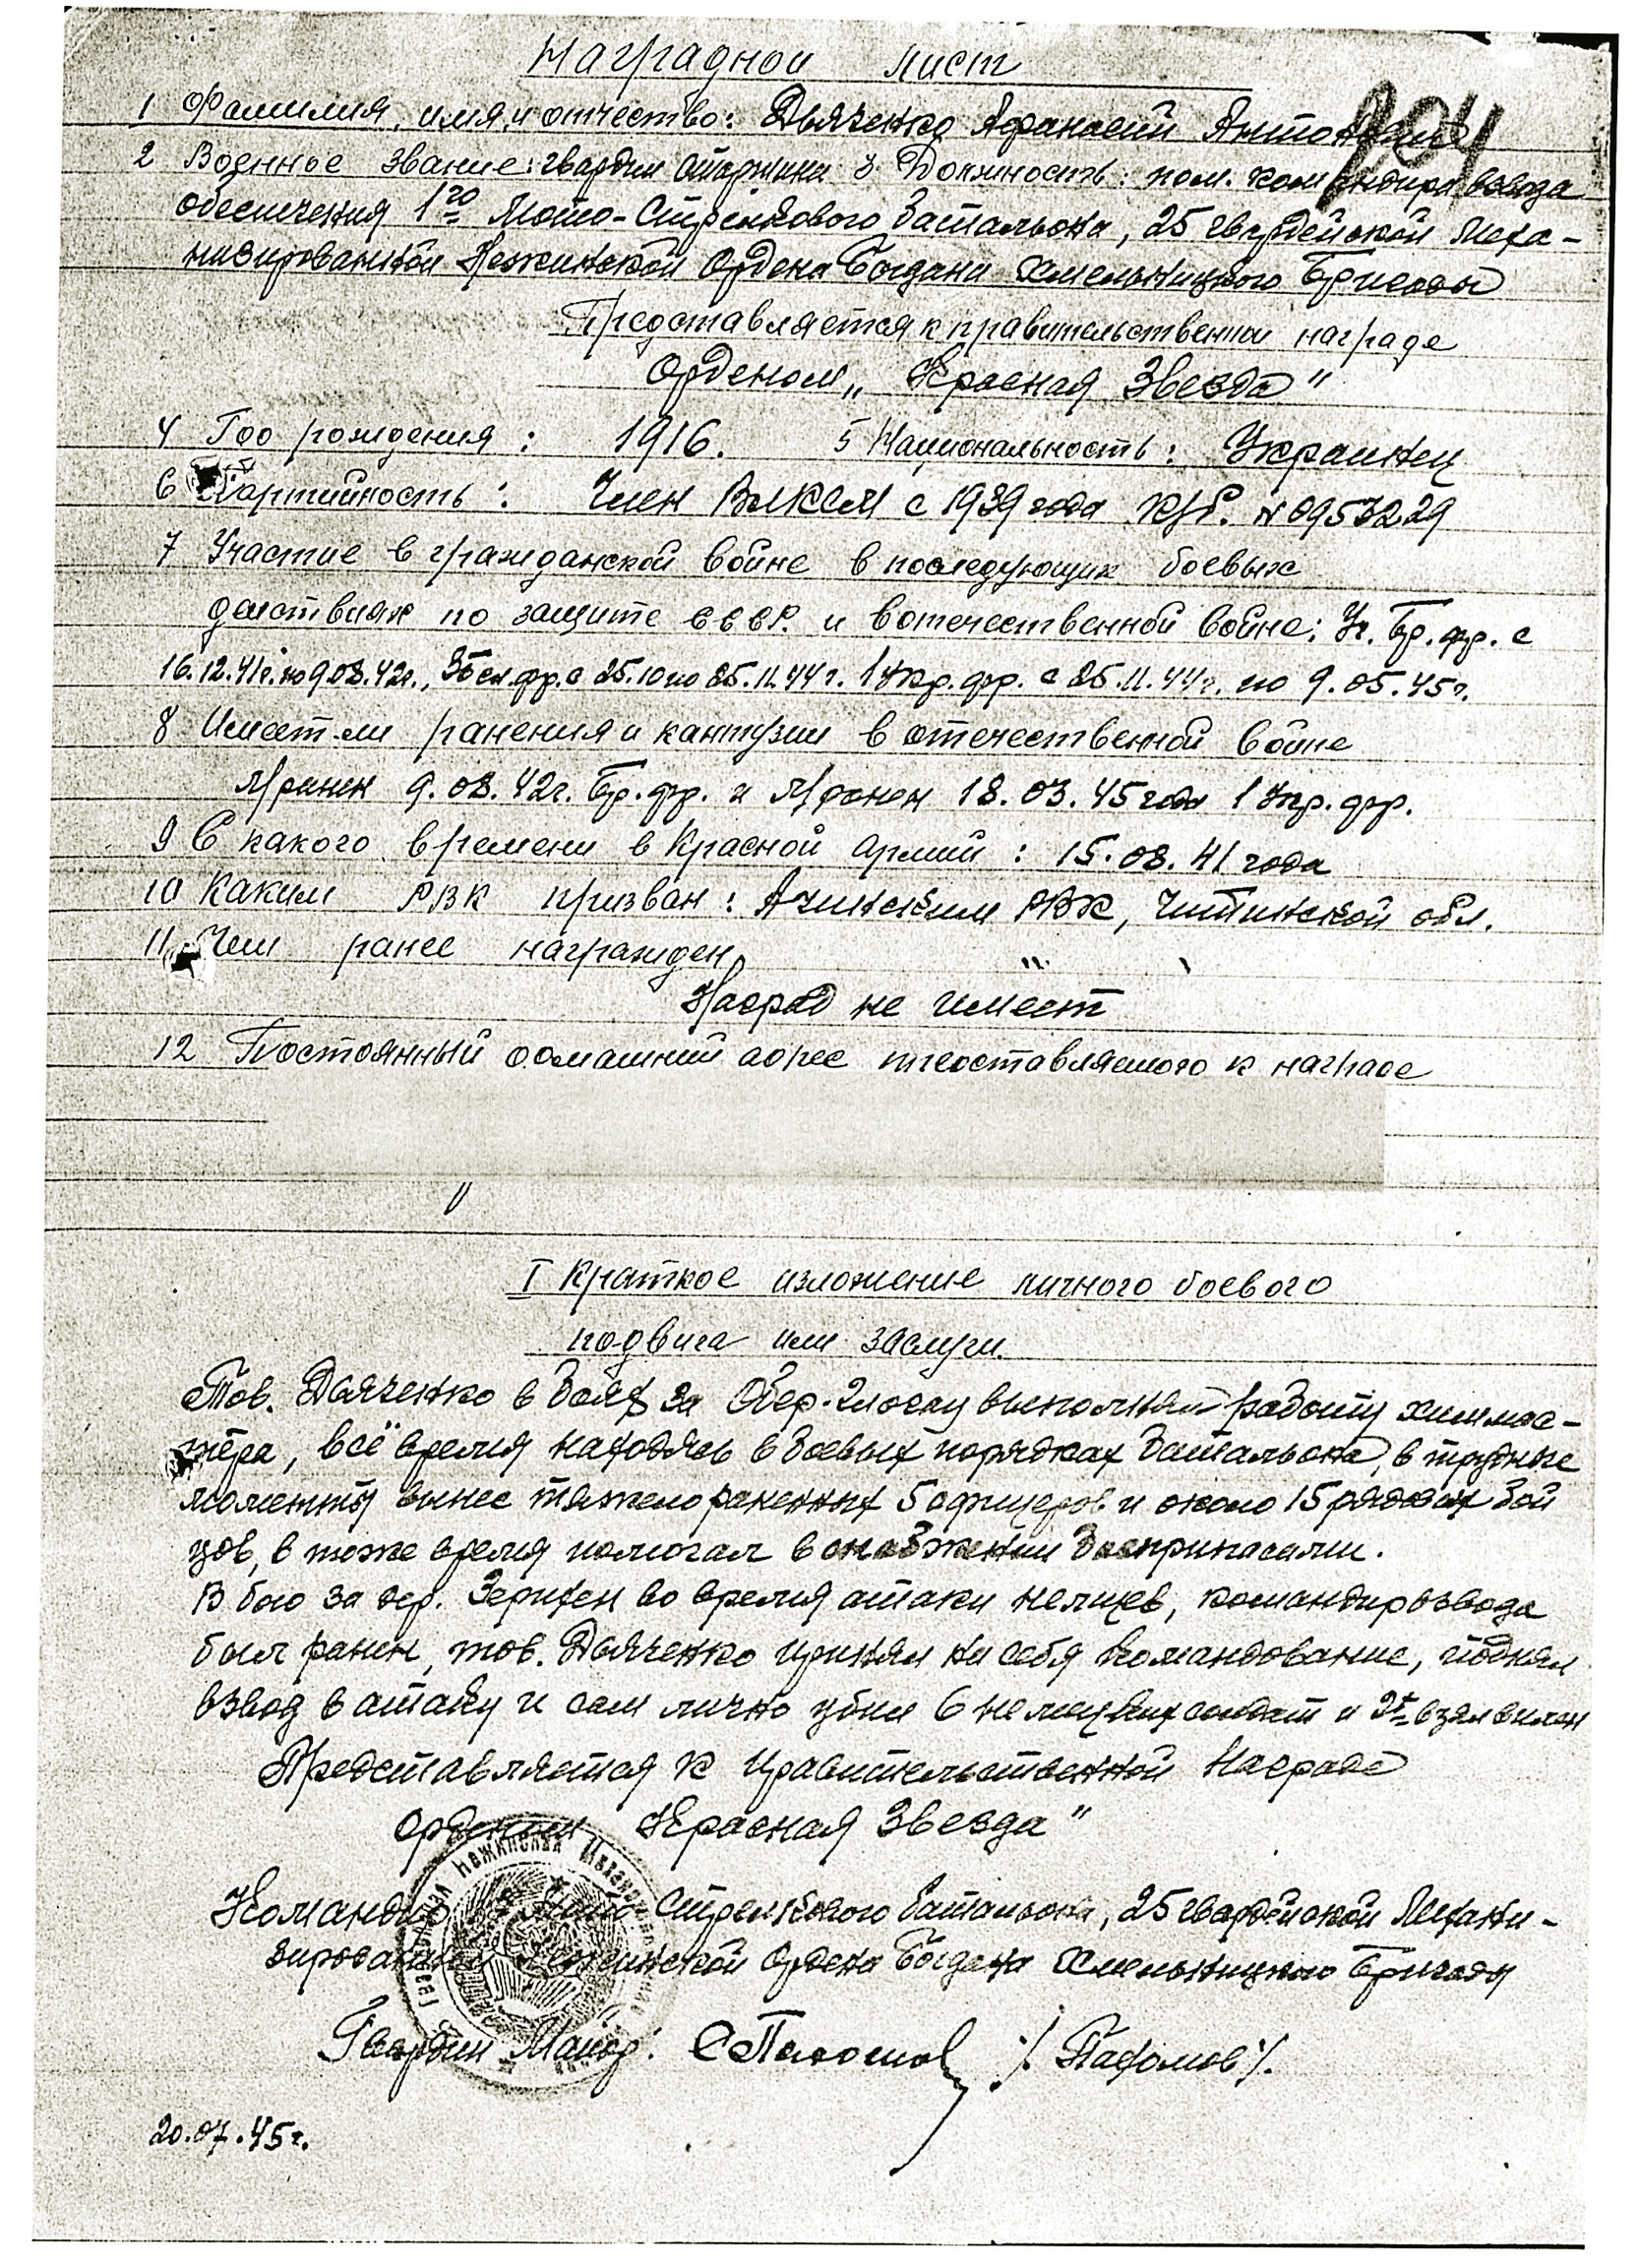 Наградной лист
904
1 Фамилия, имя, и отчество: Дьяченко Афанасий Антонович
2 Военное звание: гвардии старшина 3 Должность: пом. командира взвода
обеспечения 1го Мото-Стрелкового Батальона, 25 гвардейской Меха-
низированной Нежинской Ордена Богдана Хмельницкого Бригады
Представляется к правительственной награде
Орденом „Красная Звезда"
4 Год рождения: 1916. 5 Национальность: Украинец
6 Партийность: Член ВЛКСМ с 1939 года к/б. № 09573229
7 Участие в гражданской войне в последующих боевых
действиях по защите СССР. и в отечественной войне: Бр. фр. с
16.12.41г. по 9.08.42г., фр. с 25.10 по 25.11.44г. 1 Укр. фр. с 25.11.44г. по 9.05.45г.
8 Имеет-ли ранения и кантузии в отечественной войне
л/ранен 9.08.42г. Бр. фр. и л/ранен 18.03.45 года 1 Укр. фр.
9 С какого времени в Красной армии: 15.08.41 года
10 Каким РВК призван: Ачинским РВК, Читинской обл.
11 Чем ранее награжден
Наград не имеет
12 Постоянный домашний адрес представляемого к награде
I Краткое изложение личного боевого
подвига или заслуги.
Тов. Дьяченко в боях за Обер. выполнял работу химмас-
тера, всё время находясь в боевых порядках батальона, в трудные
моменты вынес тяжелораненных 5 офицеров и около 15 рядовых бой
цов, в тоже время помогал в снабжении боеприпасами.
В бою за дер. во время атаки немцев, командир взвода
был ранен, тов. Дьяченко принял на себя командование, поднял
взвод в атаку и сам лично убил 6 немецких солдат и 2х взял в плен
Представляется к правительственной награде
орденом „Красная Звезда"
Командир Мото-Стрелкового батальона, 25 гвардейской Механи-
зированной Нежинской Ордена Богдана Хмельницкого Бригады
Гвардии Майор: /Пахомов/.
20.07.45г.